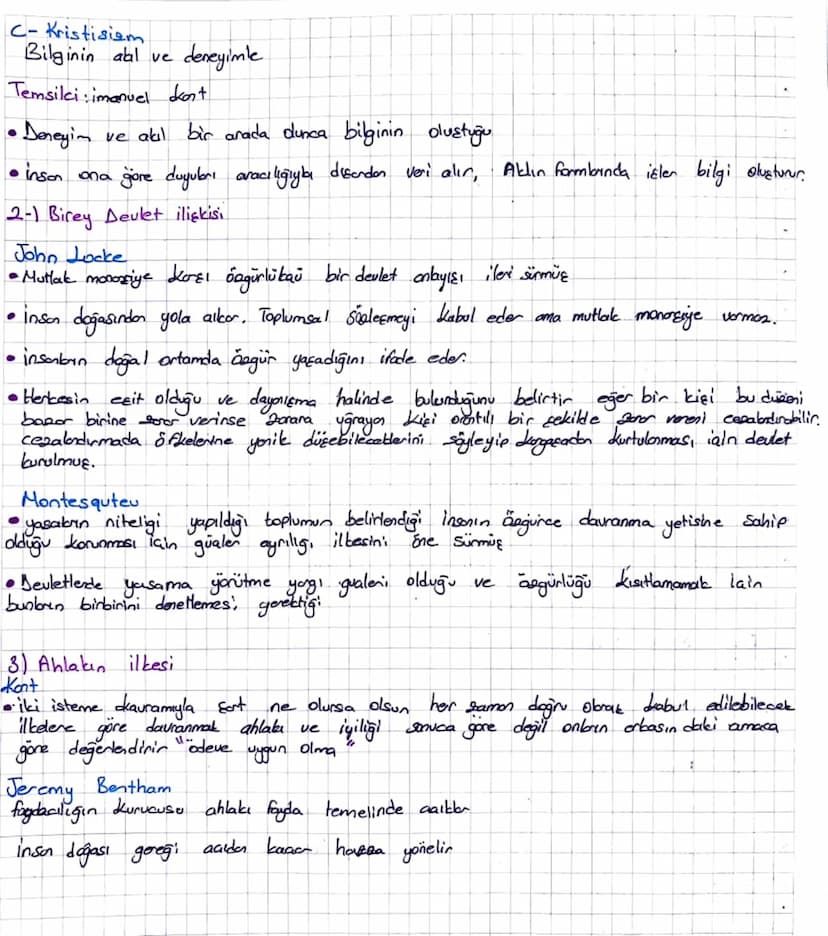 C- Kristisizm
Bilginin akıl ve deneyimle
Temsilci: imanuel kant
• Deneyim ve akıl bir arada olunca bilginin oluştuğu
• İnsan ona göre duyuları aracılığıyla dışardan veri alır, Aklın formlarında işler bilgi oluşturur.
2-) Birey Devlet ilişkisi
John Locke
• Mutlak monarşiye karşı özgürlükçü bir devlet anlayışı ileri sürmüş
• İnsan doğasından yola çıkar. Toplumsal Sözleşmeyi kabul eder ama mutlak monarşiye vermez.
• insanların doğal ortamda özgür yaşadığını ifade eder.
• Herkesin eşit olduğu ve dayanışma halinde bulunduğunu belirtir eğer bir kişi bu düzeni
bozar birine zarar verirse zarara uğrayan kişi orantılı bir şekilde zarar vereni cezalandırabilir.
cezalandırmada öfkelerine yenik düşebileceklerini söyleyip kargaşadan kurtulanması, için devlet
kurulmuş.
Montesquteu
• yasaların niteliği yapıldığı toplumun belirlendiği insanın özgürce davranma yetisine sahip
olduğu korunması için güçler ayrılığı ilkesini öne sürmüş
• Devletlerde yasama yürütme yargı güçleri olduğu ve özgürlüğü kısıtlamamak için
bunların birbirini denetlemesi gerektiği
3) Ahlakın ilkesi
Kant
• iki isteme kavramıyla şart ne olursa olsun her zaman doğru olarak kabul edilebilecek
ilkelere göre davranmak ahlakı ve iyiliği sonuca göre değil onların arkasındaki amaca
göre değerlendirir "ödeve uygun olma"
Jeremy Bentham
faydacılığın kurucusu ahlakı fayda temelinde açıklar
insan doğası gereği acıdan kaçar hazza yönelir